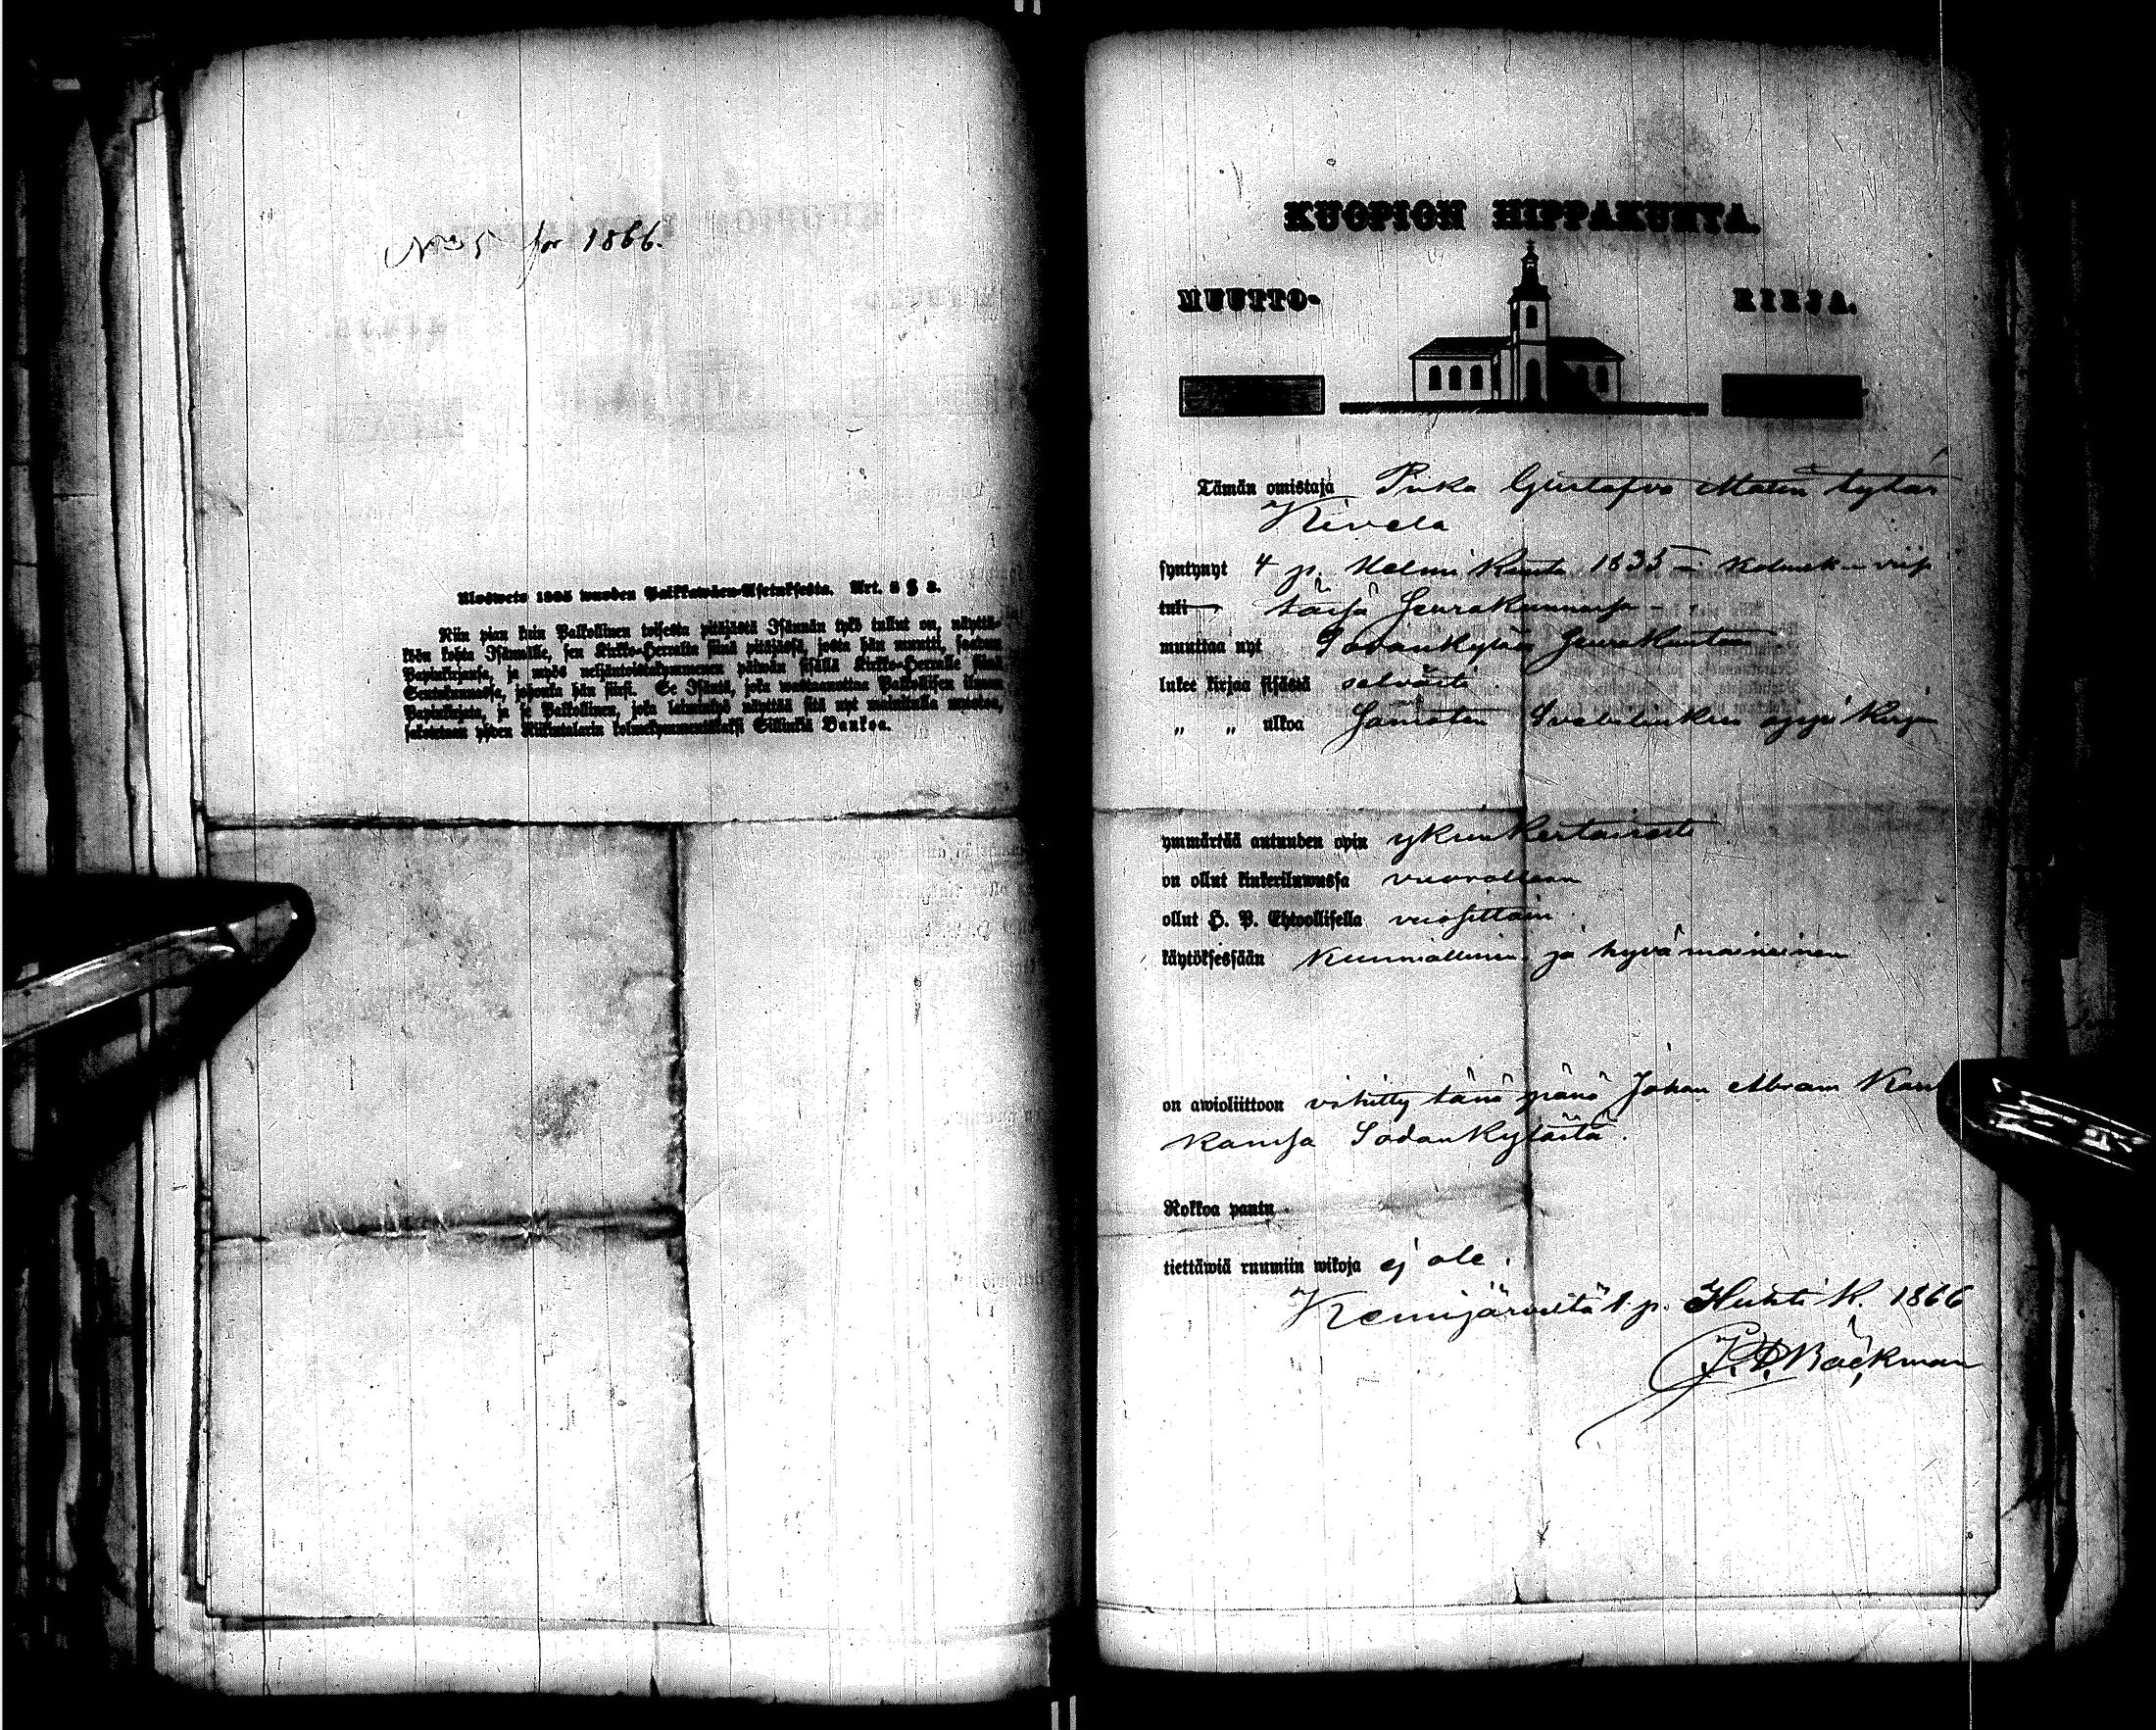 No 5 för 1866.
Ulosweto 1805 wuoden Palkkawäen-Asetuksesta. Art. 5 § 2.
Niin pian kuin Palkollinen toisesta pitäjästä Isännän tykö tullut on, näyttä-
köön kohta Isännälle, sen Kirkko-Herralta siinä pitäjässä, josta hän muutti, saadun
Papinkirjansa, ja myös neljäntoistakymmenen päiwän sisällä Kirkko-Herralle siinä
Seurakunnassa, johonka hän siirsi. Se Isäntä, joka wastaanottaa Palkollisen ilman
Papinkirjata, ja se Palkollinen, joka laiminlyö näyttää sitä nyt mainitulla muotoa,
sakotetaan yhden Riikintalarin kolmekymmentäkaksi Sillinkiä Bankoa.
KUOPION HIPPAKUNTA.
MUUTTO- KIRJA.
Tämän omistaja Gustafva Matin tytär
Kivela
syntynyt 4 p. Helmi Kuuta 1835
tuli tässä Seurakunnassa
muuttaa nyt Sodankylän Seurakuntaan
lukee kirjaa sisästä selvästi
„ „ ulkoa
ymmärtää autuuden opin yksinkertaisesti
on ollut kinkeriluwussa vuorollaan
ollut H. P. Ehtoollisella vuosittain
käytöksessään Kunniallinen ja hyvä maineinen
on awioliittoon vihitty tänä pänä Johan Abram
kanssa Sodankylästä.
Rokkoa pantu
tiettäwiä ruumiin wikoja ej ole.
Kemijärveltä 1. p. Huhti K. 1866
Bäckman